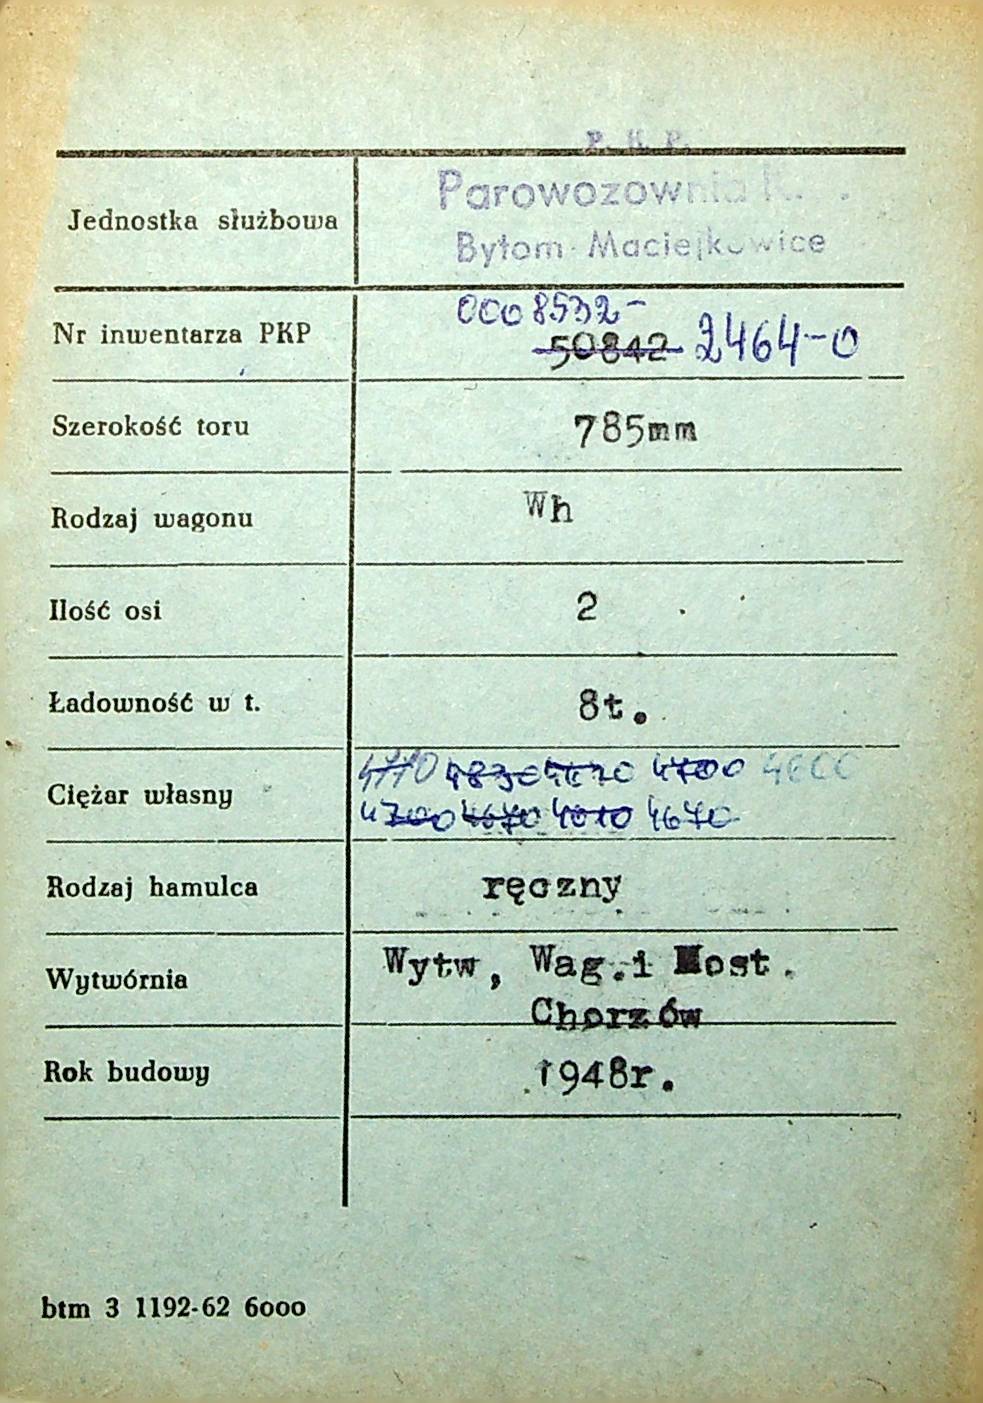 P. K. P.
Parowozownia K.
Jednostka służbowa
Bytom-Maciejkowice
0008532-
Nr inwentarza PKP 50842 2464-0
Szerokość toru 785mm
Rodzaj wagonu Wh
Ilość osi 2
Ładowność w t. 8t.
4770 4830 4700 4600
Ciężar własny
4700 4670 4610 4670
Rodzaj hamulca ręczny
Wytwórnia Wytw, Wag.i Most.
Chorzów
Rok budowy 1948r.
btm 3 1192-62 6000